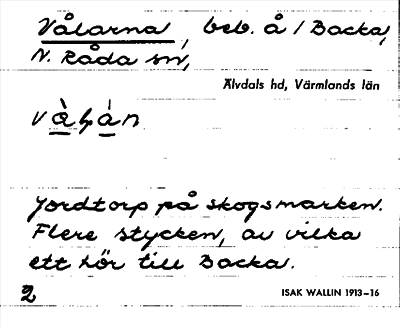 Vålarna, beb. å 1 Backa,
N. Råda sn,
Älvdals hd, Värmlands län
Jordtorp på skogsmarken.
Flere stycken, av vilka
ett hör till Backa.
2
ISAK WALLIN 1913–16